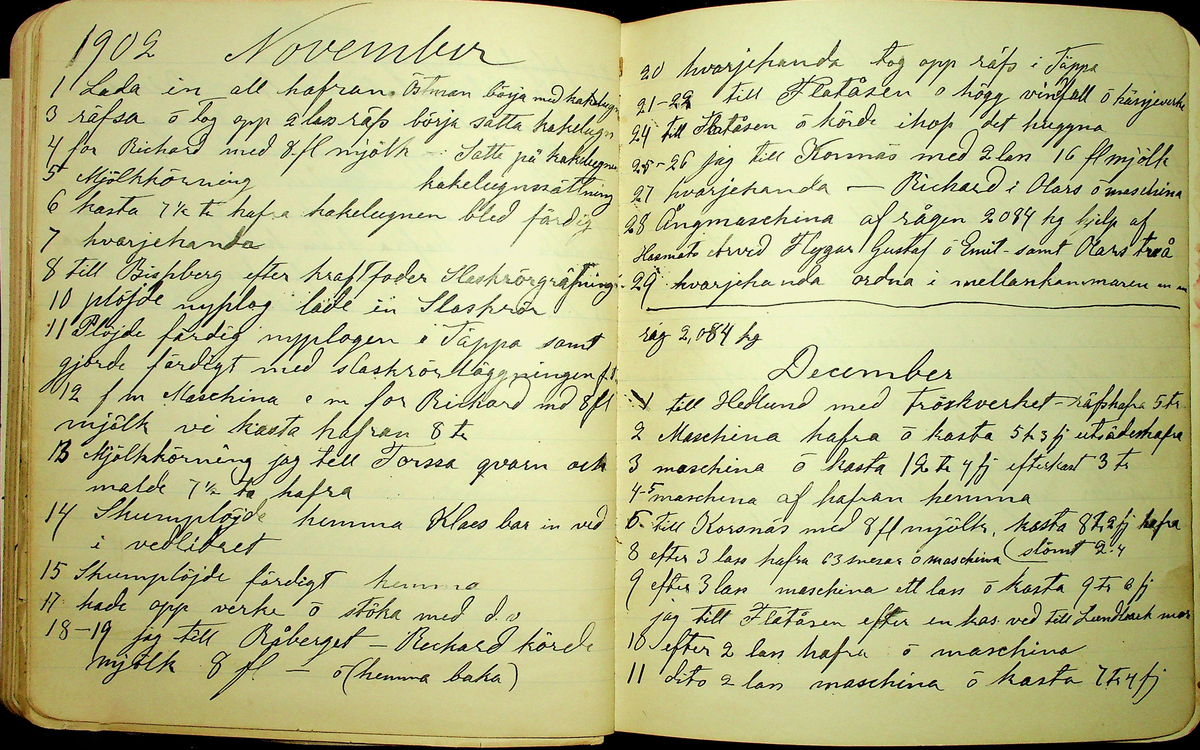 1902 November
1 Lada in all hafran. Östman börja med kakelugn
3 räfsa ō tog opp 2 lass räfs börja sätta kakelugn
4 for Richard med 8 fl mjölk - Satte på kakelugnen
5 Mjölkkörning kakelugnssättning
6 kasta 7½ tr hafra kakelugnen blef färdig
7 hvarjehanda
8 till Bispberg efter kraftfoder Slaskrörgräfning
10 plöjde nyplog lade in Slaskrör
11 Plöjde färdig nyplogen i Täppa samt
gjorde färdigt med slaskrörläggningen
12 f m Maschina e m for Richard md 8 fl
mjölk vi kasta hafran 8 tr
13 Mjölkkörning jag till Torssa qvarn och
malde 7½ ta hafra
14 Skumplöjde hemma Klaes bar in ved
i vedlidret
15 Skumplöjde färdigt hemma
17 hade opp verke ō stöka med d. o
18-19 jag till Råberget - Richard körde
mjölk 8 fl - ō (hemma baka)
20 hvarjehanda tog opp räfs i Täppa
21-22 till Flatåsen ō högg vindfall ō kärsjeverke
24 till Flatåsen ō körde ihop det huggna
25-26 jag till Korsnäs med 2 lass 16 fl mjölk
27 hvarjehanda - Richard i Olars ō maschina
28 Ångmaschina af rågen 2084 kg hjelp af
Arvid Flyggar Gustaf ō Emil - samt Olars två
29 hvarjehanda ordna i mellankammaren
råg 2,084 kg
December
1 till Hedlund med Tröskverket - räfshafra 5 tr
2 Maschina hafra ō kasta 5 tr 3 fj utsädeshafra
3 maschina ō kasta 12 tr 4 fj efterkast 3 tr
4-5 maschina af hafran hemma
6 till Korsnäs med 8 fl mjölk, kasta 8 tr 2 fj hafra
8 efter 3 lass hafra 63 snesar ō maschina (slömt 2.4
9 efter 3 lass maschina ett lass ō kasta 9 tr 6 fj
jag till Flatåsen efter en kas. ved till Lundmark
10 efter 2 lass hafra ō maschina
11 dito 2 lass maschina ō kasta 7 tr 4 fj